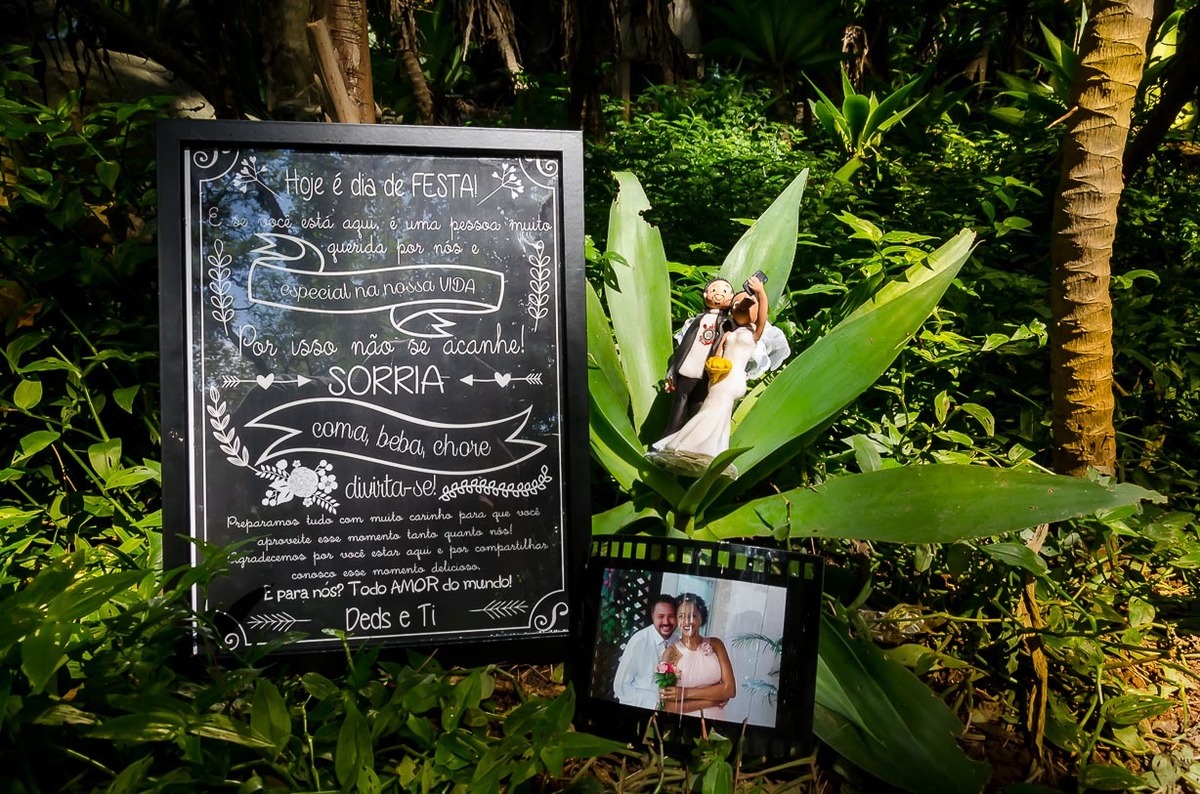 Hoje é dia de FESTA!
E se você está aqui, é uma pessoa muito
querida por nós e
especial na nossa VIDA
Por isso não se acanhe!
SORRIA
coma, beba, chore
divirta-se!
Preparamos tudo com muito carinho para que você
aproveite esse momento tanto quanto nós!
Agradecemos por você estar aqui e por compartilhar
conosco esse momento delicioso.
E para nós? Todo AMOR do mundo!
Deds e Ti